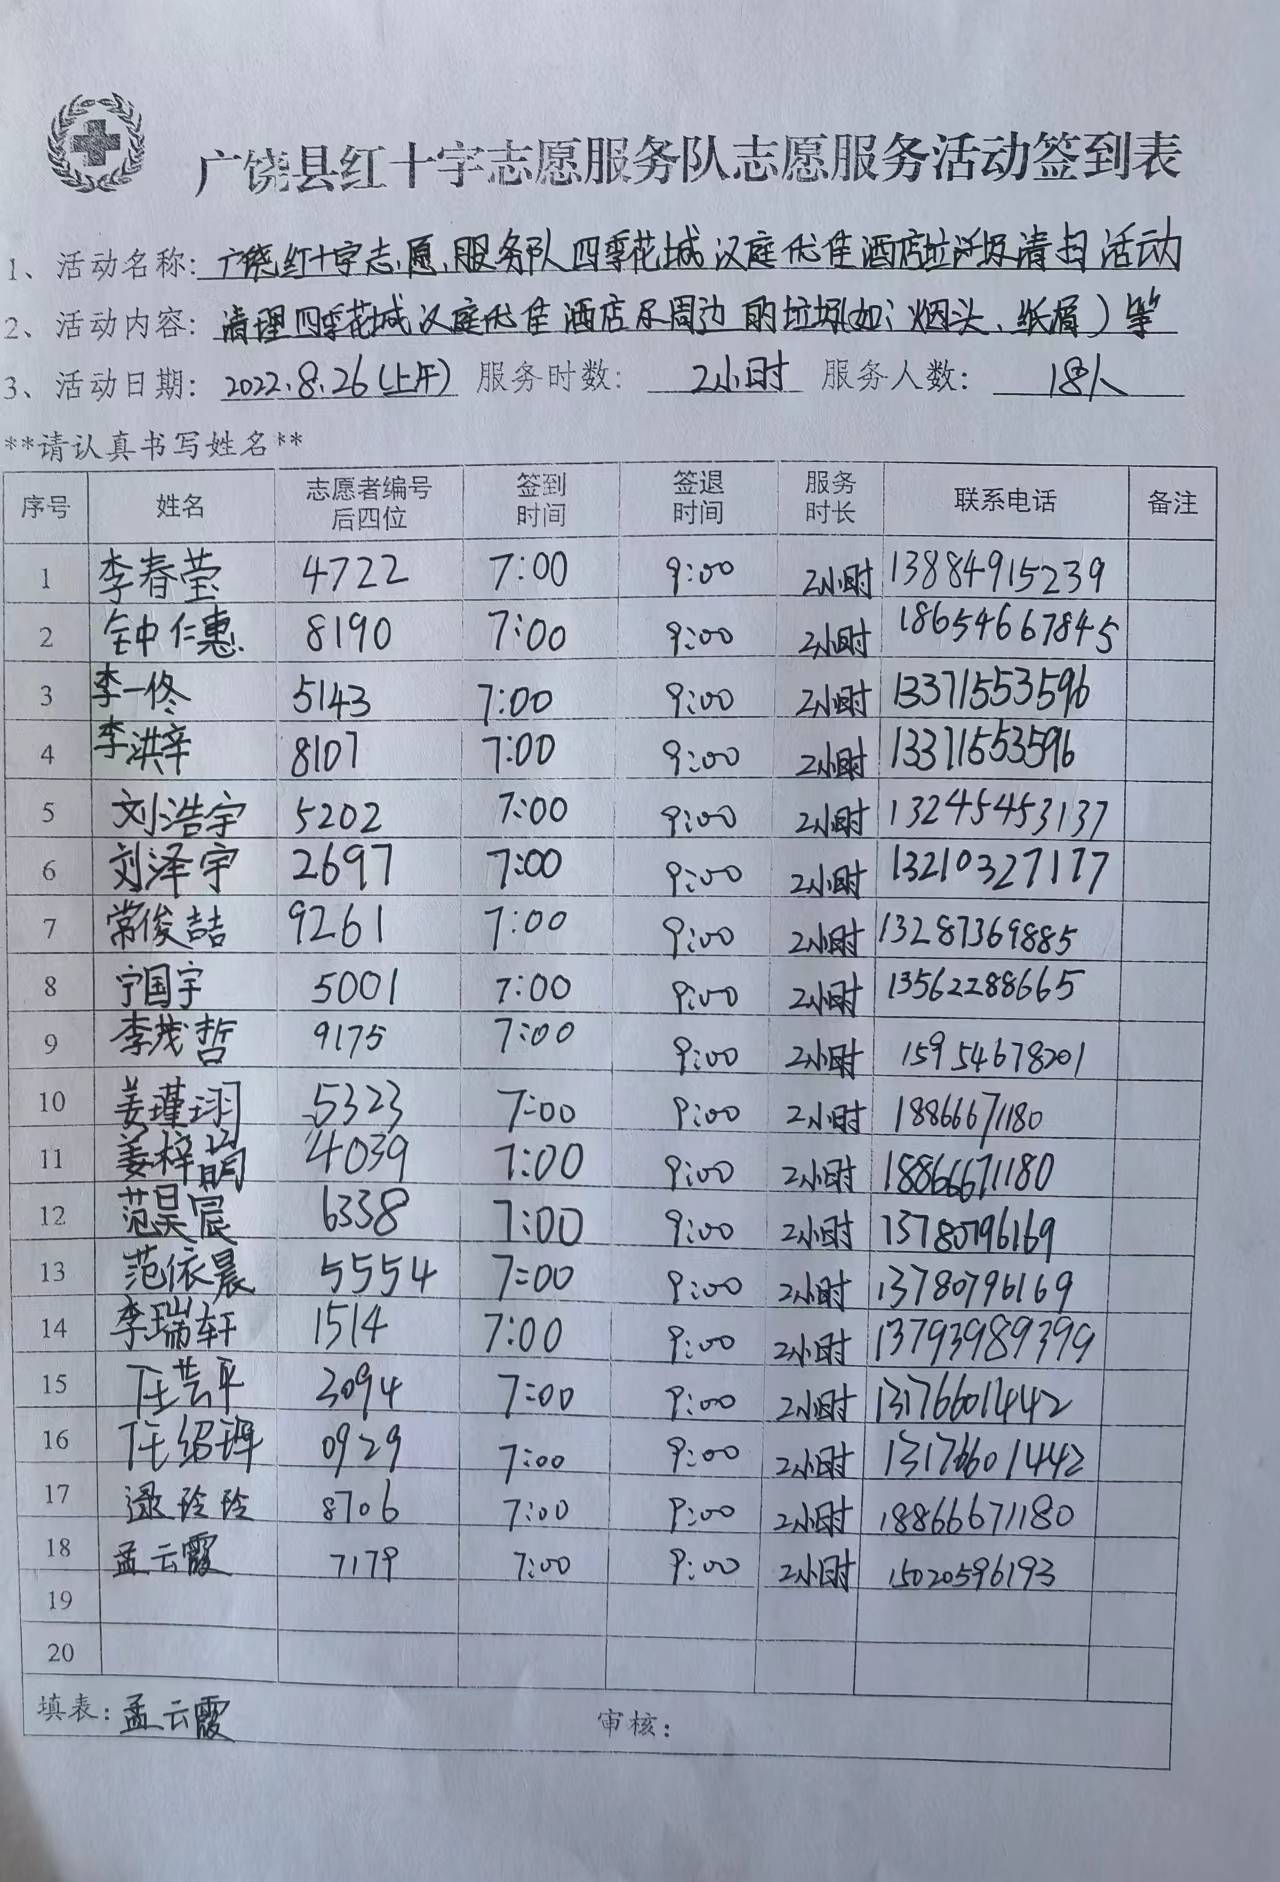 广饶县红十字志愿服务队志愿服务活动签到表
1、活动名称: 广饶红十字志愿服务队四季花城汉庭优佳酒店垃圾清扫活动
2、活动内容: 清理四季花城汉庭优佳酒店及周边的垃圾(如:烟头、纸屑)等
3、活动日期: 2022.8.26(上午) 服务时数: 2小时 服务人数: 18人
**请认真书写姓名**
序号 姓名 志愿者编号后四位 签到时间 签退时间 服务时长 联系电话 备注
1 李春莹 4722 7:00 9:00 2小时 13884915239
2 仁惠 8190 7:00 9:00 2小时 18654667845
3 李一佟 5143 7:00 9:00 2小时 13371553596
4 李洪辛 8107 7:00 9:00 2小时 13371553596
5 刘浩宇 5202 7:00 9:00 2小时 13245453137
6 刘泽宇 2697 7:00 9:00 2小时 13210327177
7 常俊喆 9261 7:00 9:00 2小时 13287369885
8 宁国宇 5001 7:00 9:00 2小时 13562288665
9 李茂哲 9175 7:00 9:00 2小时 15954678201
10 姜瑾翊 5323 7:00 9:00 2小时 18866671180
11 姜梓 4039 7:00 9:00 2小时 18866671180
12 范昊宸 6338 7:00 9:00 2小时 13780796169
13 范依晨 5554 7:00 9:00 2小时 13780796169
14 李瑞轩 1514 7:00 9:00 2小时 13793989399
15 任芸平 3094 7:00 9:00 2小时 13176601442
16 任绍 0929 7:00 9:00 2小时 13176601442
17 逯玲玲 8706 7:00 9:00 2小时 18866671180
18 孟云霞 7179 7:00 9:00 2小时 15020596193
19
20
填表: 孟云霞 审核: